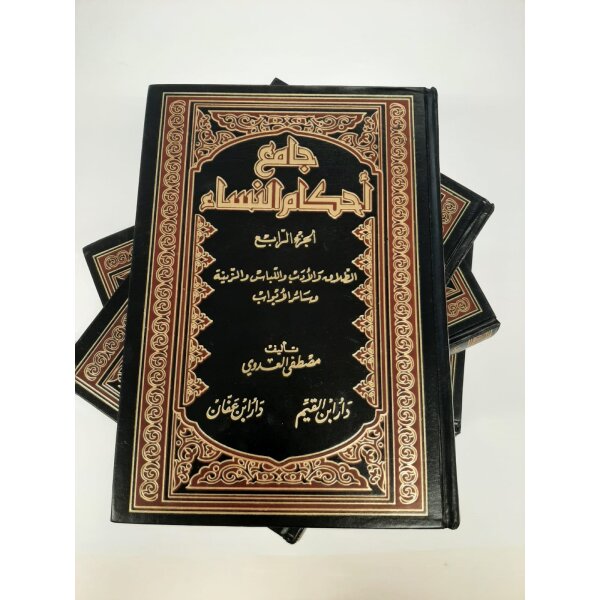 جامع
أحكام النساء
الجزء الرابع
الطلاق والأدب واللباس والزينة
وسائر الأبواب
تأليف
مصطفى العدوي
دار ابن القيم دار ابن عفان